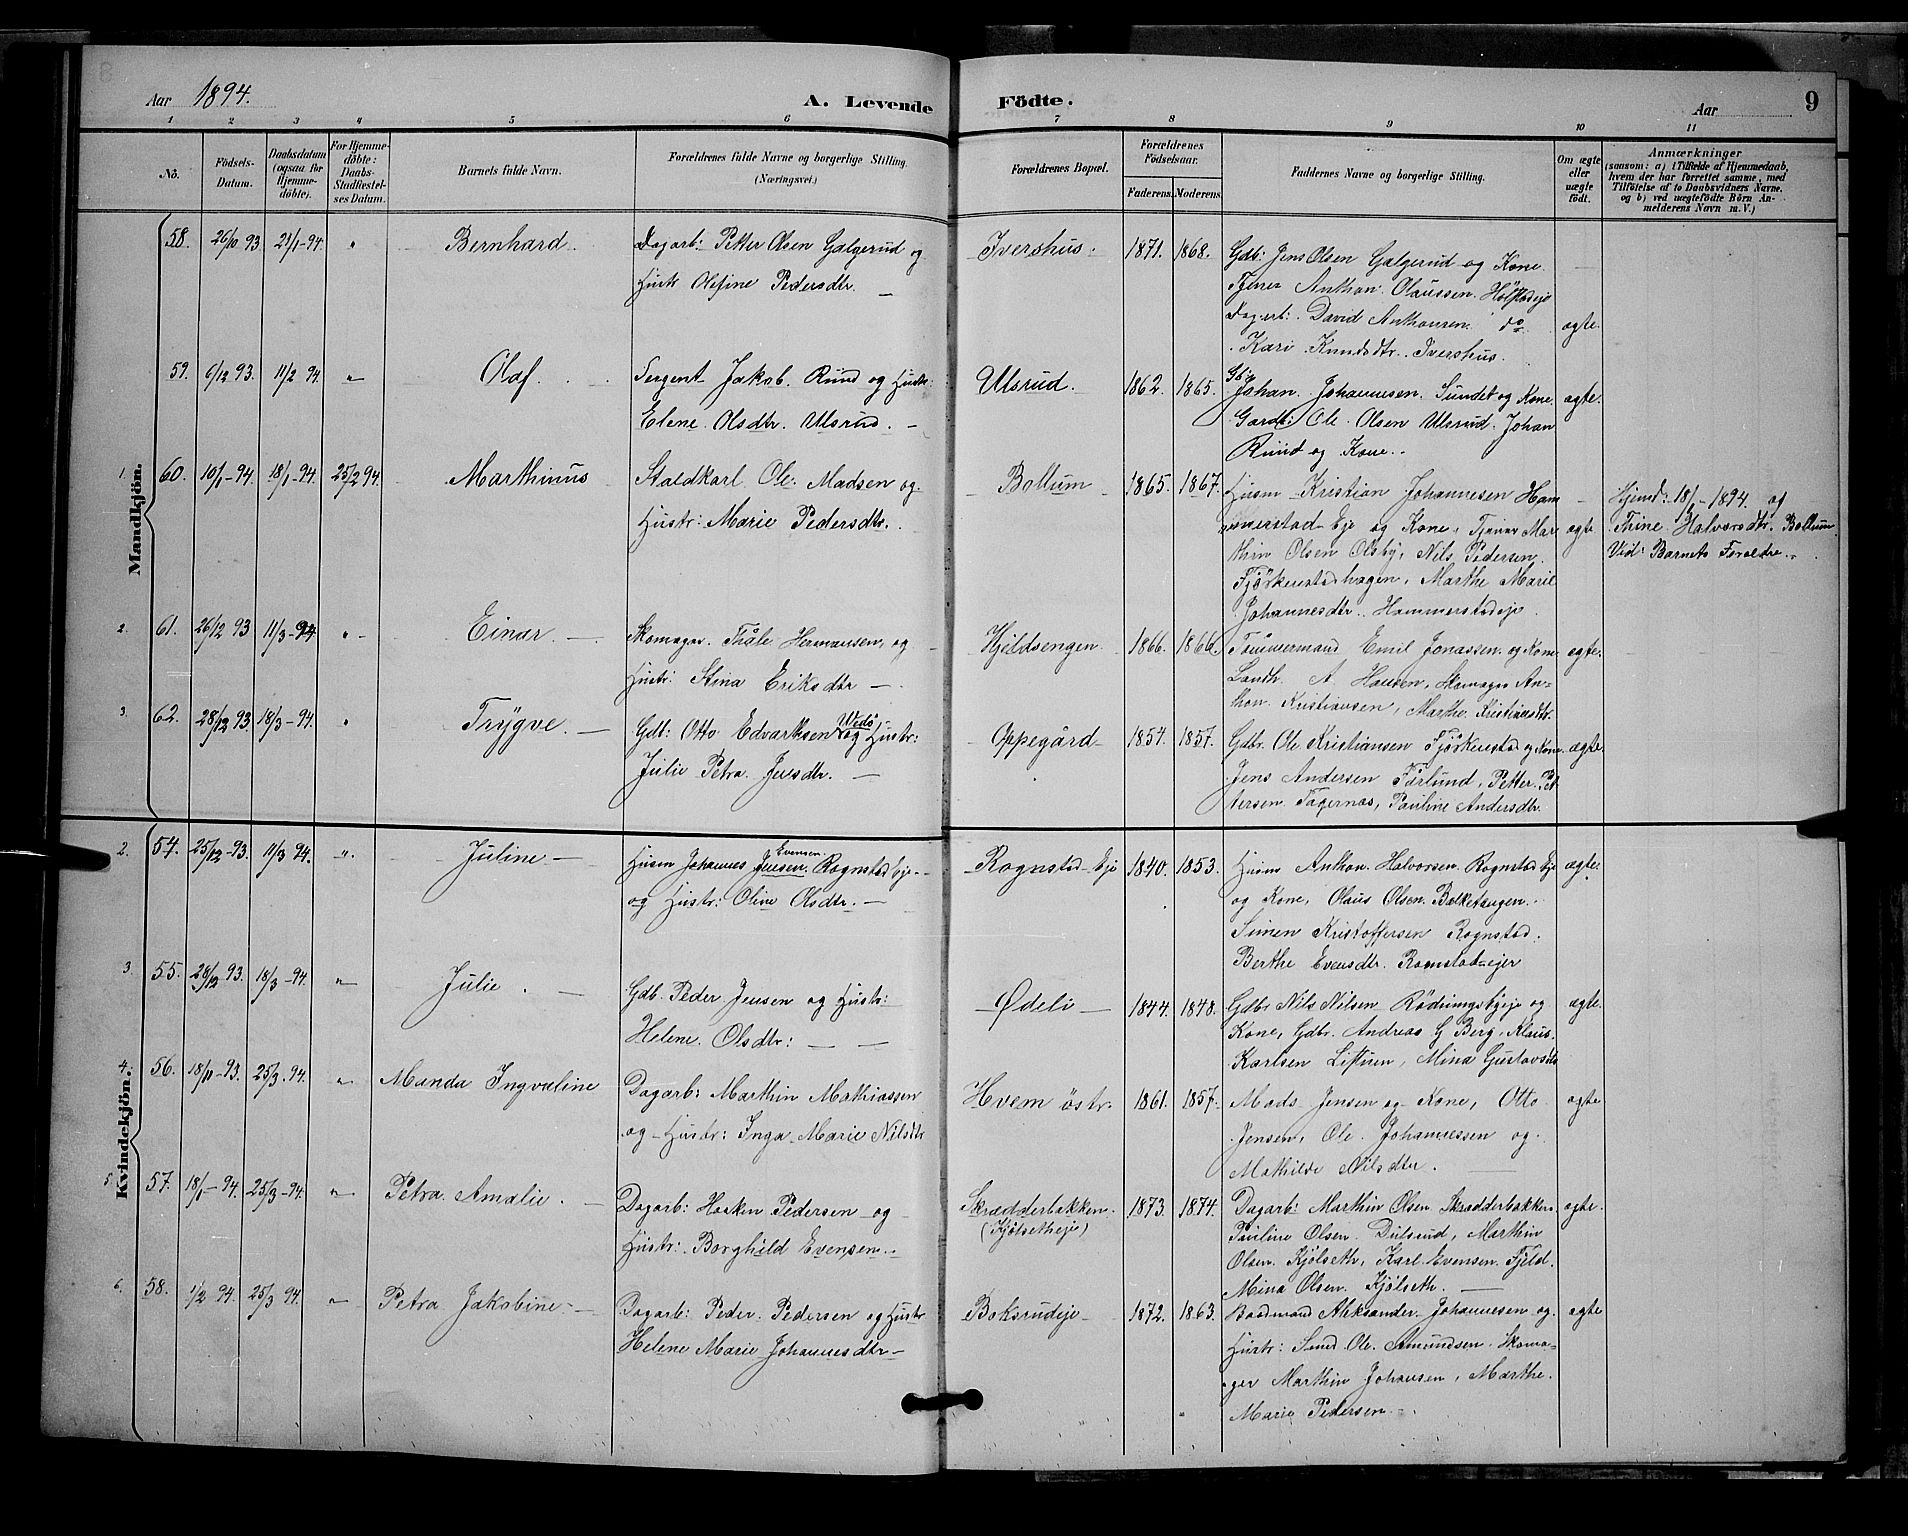 Aar 1894.
A. Levende Födte.
Aar
9
1 2 3 4 5 6 7 8 9 10 11
No.
Födsels-Datum.
Daabsdatum (ogsaa for Hjemmedöbte).
For Hjemmedöbte: Daabs-Stadfæstelses Datum.
Barnets fulde Navn.
Forældrenes fulde Navne og borgerlige Stilling. (Næringsvei.)
Forældrenes Bopæl.
Forældrenes Födselsaar.
Faderens. Moderens.
Faddernes Navne og borgerlige Stilling.
Om ægte eller uægte födt.
Anmærkninger
(saasom: a) i Tilfælde af Hjemmedaab,
hvem der har forrettet samme, med
Tilföielse af to Daabsvidners Navne.
og b) ved uægtefödte Börn An-
melderens Navn m. V.)
Mandkjön.
58. 26/10 93 21/1-94. " Bernhard.
Dagarb: Petter Olsen Galgerud og
Hustr Olefine Pedersdtr. —
Ivershus. 1871. 1868.
Gdb: Jens Olsen Galgerud og Kone.
Tjener Anthon Olaussen
Dagarb: David Anthonsen do
Kari Knudsdtr. Ivershus.
ægte.
59. 6/12 93. 11/2 94. " Olaf.
Sergent Jakob Rund og Hustr:
Elene Olsdtr. Ulsrud. —
Ulsrud. 1862. 1865.
Johan Johannesen Sundet og Kone.
Gardb: Ole Olsen Ulsrud. Johan
Rund og Kone.
ægte.
1. 60. 10/1-94. 18/1-94. 25/2 94. Marthinus
Staldkarl Ole Madsen og
Hustr: Marie Pedersdtr.
Bollum 1865. 1867.
Husm Kristian Johannesen Ham
merstad Eje og Kone, Tjener Mar
thin Olsen Olsby, Nils Pedersen
Fjörkenstadhagen, Marthe Marie
Johannesdtr. Hammerstadeje
ægte
Hjemd: 18/1-1894. og
Thine Halvorsdtr. Bollum
Vid: Barnets Forældre.
2. 61. 26/12 93 11/3-94 " Einar.
Skomager Thåle Hermansen og
Hustr: Stina Eriksdtr —
Kjeldsengen 1866. 1866.
Tömmermand Emil Jonassen og Kone
Landh. A. Hansen, Skomager An-
thon Kristiansen, Marthe Kristiansdtr.
ægte.
3. 62. 28/12 93 18/3-94. " Trygve.
Gdb: Otto Edvardsen Wedö og Hustr:
Julie Petra Jensdtr. —
Oppegård 1854. 1857.
Gdbr. Ole Kristiansen Fjörkenstad og Kone
Jens Andersen Førlund, Petter Pet
tersen Fagernæs, Pauline Andersdtr.
ægte
Kvindekjön.
2. 54. 25/12-93. 11/3 94. " Juline —
Husm Johannes Jensen Evensen Rognstad Eje
og Hustr: Oline Olsdtr. —
Rognstad Eje 1840. 1853.
Husm Anthon Halvorsen Rognstad Eje
og Kone, Olaus Olsen
Simen Kristoffersen Rognstad.
Berthe Evensdtr. Romstadejer
ægte
3. 55. 28/12 93. 18/3-94. " Julie. —
Gdb. Peder Jensen og Hustr:
Helene Olsdtr: —
Ødeli 1844. 1848.
Gdbr Nils Nilsen Rödningsbyeje og
Kone, Gdbr. Andreas G Berg, Klaus
Karlsen Liftun, Mina Gustavsdtr
ægte.
4. 56. 18/11-93. 25/3-94. " Manda Ingvaline
Dagarb: Marthin Mathiassen
og Hustr: Inga Marie Nilsdtr
Hvem östr. 1861. 1857.
Mads Jensen og Kone, Otto
Jensen, Ole Johannessen og
Mathilde Nilsdtr. —
ægte
5. 57. 18/1-94. 25/3-94. " Petra Amalie. —
Dagarb: Haaken Pedersen og
Hustr: Borghild Evensen.
Skrædderbakken (Kjölsetheje) 1873. 1874.
Dagarb: Marthin Olsen Skrædderbakken
Pauline Olsen Dulsrud, Marthin
Olsen Kjölseth, Karl Evensen Fjeld.
Mina Olsen Kjölseth. —
ægte.
6. 58. 1/2 94. 25/3 94. " Petra Jakobine —
Dagarb: Peder Pedersen og Hustr
Helene Marie Johannesdtr —
Boksrudeje 1872. 1863.
Baadmand Aleksander Johannesen og
Hustr: Smed Ole Amundsen Skoma-
ger Marthin Johansen, Marthe
Marie Pedersen
ægte